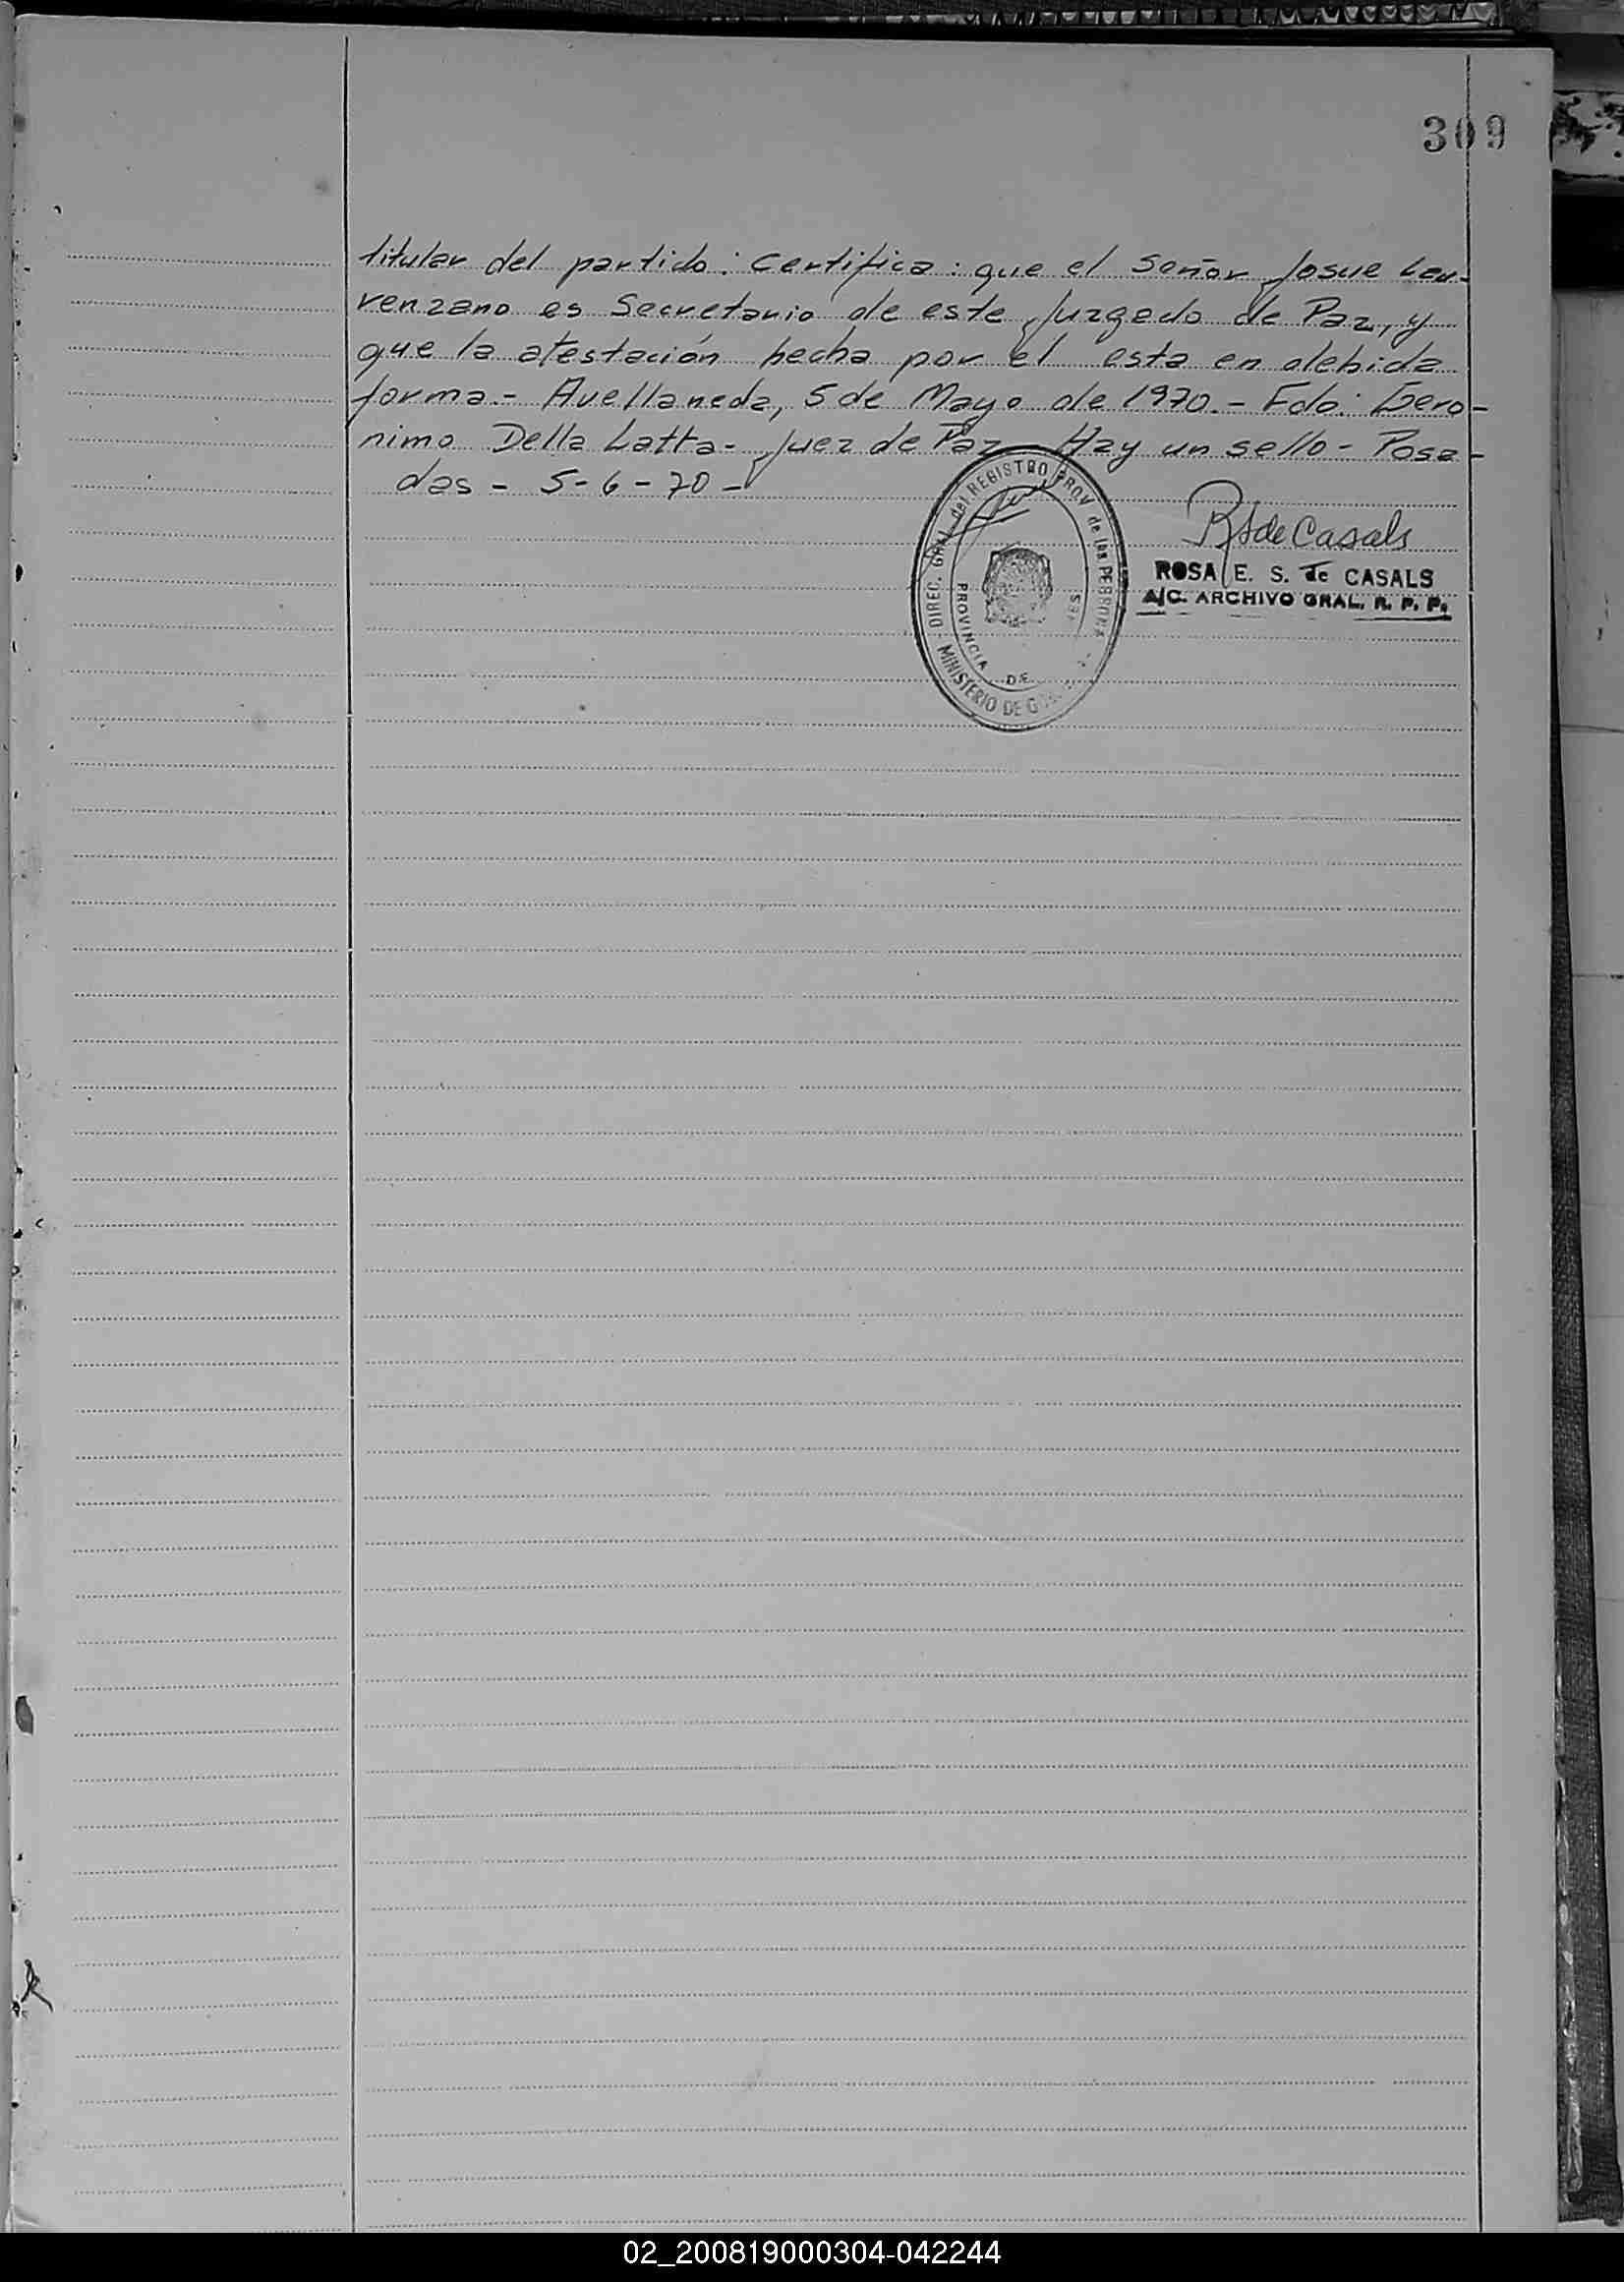 309
titular del partido: Certifica: que el señor Josue Lau-
renzano es Secretario de este Juzgado de Paz, y
que la atestación hecha por el esta en debida
forma.- Avellaneda, 5 de Mayo de 1970.- Fdo: Gero-
nimo Della Latta- Juez de Paz- Hay un sello- Posa-
das - 5-6-70-
DIREC. GRAL. del REGISTRO PROV. de las PERSONAS
PROVINCIA DE
MINISTERIO DE
R S de Casals
ROSA E. S. de CASALS
A/C. ARCHIVO GRAL. R. P. P.
02_200819000304-042244